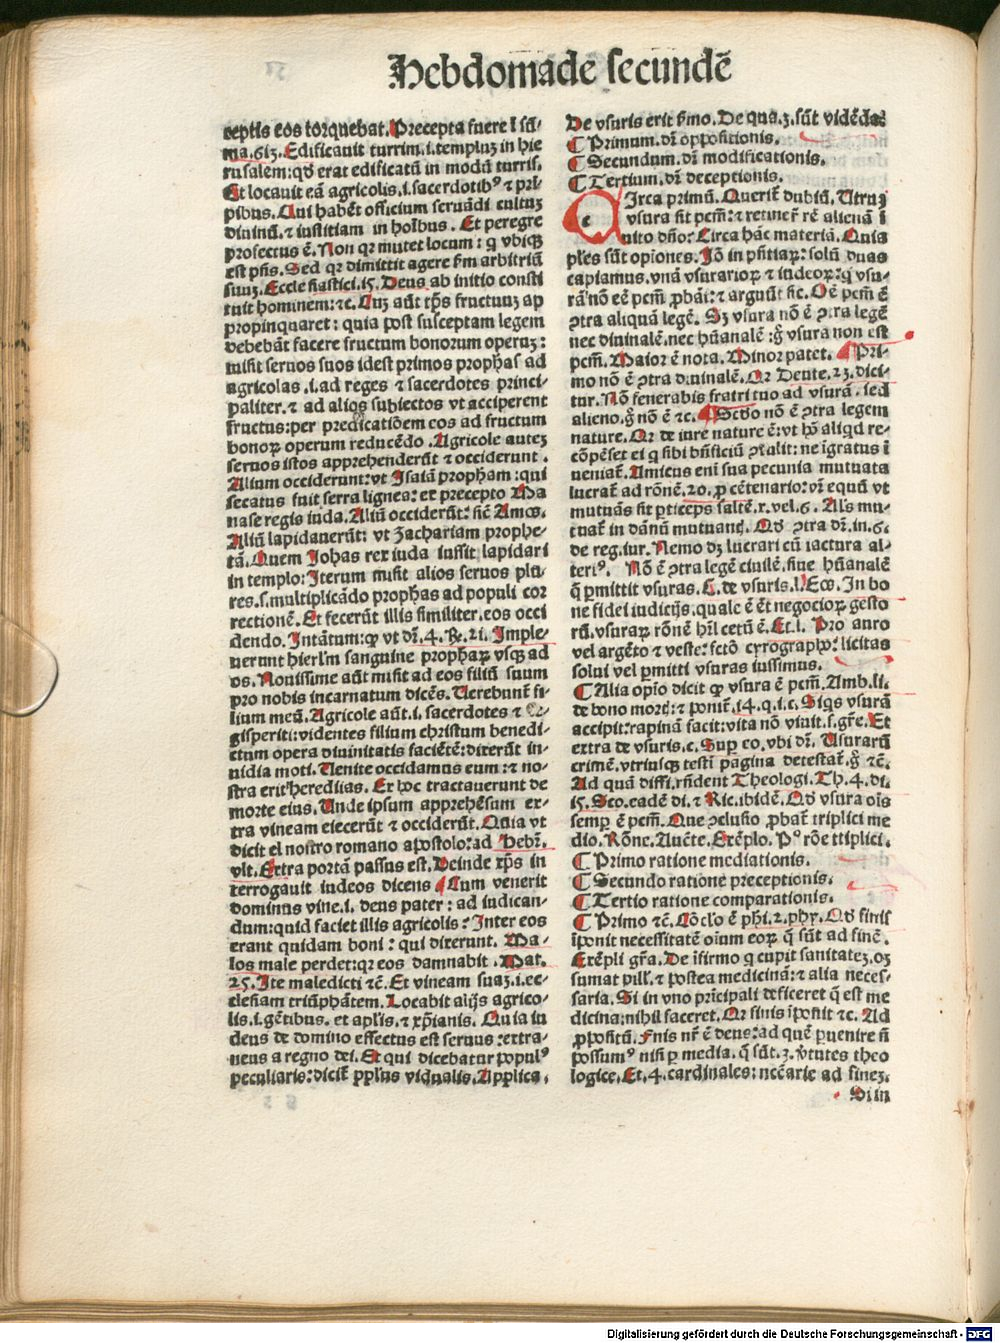 Hebdomade secundē
ceptis eos torquebat. Precepta fuere ī sū⸗
ma.613. Edificauit turrim.i.templuꝫ in hie
rusalem: qđ erat edificatū in modū turris.
Et locauit eā agricolis.i.sacerdotibꝰ ⁊ prī⸗
pibus. Qui habēt officium seruādi cultuꝫ
diuinū.⁊ iustitiam in hoībus. Et peregre
profectus ē. Non qꝛ mutet locum: ꝗ vbiqꝫ
est p̄ns. Sed qꝛ dimittit agere ẜm arbitriū
suuꝫ. Ecclesiastici.15. Deus ab initio consti
tuit hominem: ⁊c. Cuꝫ aūt tp̄s fructuuꝫ ap
propinquaret: quia post susceptam legem
debebāt facere fructum bonorum operuꝫ:
misit seruos suos idest primos prophas ad
agricolas.i.ad reges ⁊ sacerdotes princi⸗
paliter.⁊ ad alios subiectos vt acciperent
fructus: per predicatiōem eos ad fructum
bonoꝝ operum reducēdo. Agricole auteꝫ
seruos istos apprehenderūt ⁊ occiderunt.
Alium occiderunt: vt Isaiā propham: qui
secatus fuit serra lignea: ex precepto Ma
nase regis iuda. Aliū occiderūt: sic̄ Amos.
Aliū lapidauerūt: vt Zachariam prophe⸗
tā. Quem Johas rex iuda iussit lapidari
in templo: Iterum misit alios seruos plu⸗
res.s.multiplicādo prophas ad populi cor
rectionē. Et fecerūt illis similiter. eos occi
dendo. Intātum: ꝙ vt dr̄.4. Re.21. Imple⸗
uerunt hierlm̄ sanguine prophaꝝ vsqꝫ ad
os. Nouissime aūt misit ad eos filiū suum
pro nobis incarnatum dicēs. Uerebunt̄ fi⸗
lium meū. Agricole aūt.i.sacerdotes ⁊ le⸗
gisperiti: videntes filium christum benedi⸗
ctum opera diuinitatis faciētē: dixerūt in⸗
uidia moti. Uenite occidamus eum: ⁊ no⸗
stra erit hereditas. Ex hoc tractauerunt de
morte eius. Unde ipsum apprehēsum ex⸗
tra vineam eiecerūt ⁊ occiderūt. Quia vt
dicit el nostro romano apostolo: ad Hebr̄.
vlt. Extra portā passus est. Deinde xp̄s in
terrogauit iudeos dicens Cum venerit
dominus vine.i. deus pater: ad iudican⸗
dum: quid faciet illis agricolis? Inter eos
erant quidam boni: qui dixerunt. Ma⸗
los male perdet: qꝛ eos damnabit. Mat.
25. Ite maledicti ⁊c̄. Et vineam suaꝫ.i.ec⸗
clesiam triūphātem. Locabit alijs agrico⸗
lis.i.gētibus. et apl̄is.⁊ xp̄ianis. Quia iu
deus de domino effectus est seruus: extra⸗
neus a regno dei. Et qui dicebatur populꝰ
peculiaris: dicit̄ ppl̄us vidualis. Applica.
De vsuris erit ẜmo. De qua.3. sūt vidēda:
¶ Primum. dr̄ oppositionis.
¶ Secundum. dr̄ modificationis.
¶ Tertium. dr̄ deceptionis.
Circa primū. Querit̄ dubiū. Utruꝫ
vsura sit pctm̄: ⁊ retiner̄ rē alienā ī
uito dn̄o: Circa hāc materiā. Quia
ples sūt opiones. Iō in pn̄tiaꝝ: solū duas
capiamus. vnā vsurarioꝝ ⁊ iudeoꝝ: ꝗ vsu⸗
rā nō eē pctm̄ ꝓbāt: ⁊ arguūt sic. Oē pctm̄ ē
ꝯtra aliquā legē. Sꝫ vsura nō ē ꝯtra legē
nec diuinalē. nec hūanalē: ḡ vsura non est
pctm̄. Maior ē nota. Minor patet. ¶ Pri⸗
mo nō ē ꝯtra diuinalē. Qꝛ Deute.23. dici⸗
tur. Nō fenerabis fratri tuo ad vsurā. sed
alieno. ḡ nō ē ⁊c. ¶ Scđo nō ē ꝯtra legem
nature. Qꝛ de iure nature ē: vt hō aliqd re⸗
cōpēset ei ꝗ sibi bn̄ficiū ꝯtulit: ne īgratus ī
ueniat̄. Amicus enī sua pecunia mutuata
lucrat̄ ad rōnē.20. ꝓ cētenario: vn̄ equū vt
mutuās sit pticeps saltē.x.vel.6. Al̓s mu⸗
tuat̄ in dānū mutuant̄. Qđ ꝯtra dr̄.in.6.
de reg.iur. Nemo dꝫ lucrari cū iactura al⸗
teriꝰ. Nō ē ꝯtra legē ciuilē. siue hūanalē
q̄ ꝑmittit vsuras. C. de vsuris.l. Eos. In bo
ne fidei iudicijs. quale ē ēt negocioꝝ gesto
rū. vsuraꝝ rōnē hr̄i cetū ē. Et.l. Pro auro
vel argēto ⁊ veste: fctō cyrographo: licitas
solui vel ꝑmitti vsuras iussimus.
¶ Alia opīo dicit ꝙ vsura ē pctm̄. Amb.li.
de bono mort̄: ⁊ ponit̄.14.q.i.c. Siqs vsurā
accipit: rapinā facit: vita nō viuit.s.gr̄e. Et
extra de vsuris.c. Super eo. vbi dr̄. Usurarū
crimē. vtriusqꝫ testi pagina detestat̄. ḡ ⁊c̄.
Ad quā diffi. rn̄dent Theologi. Th.4. di.
15. Sco. eadē di. ⁊ Ric. ibidē. Qđ vsura oīs
semp ē pctm̄. Que ꝯclusio ꝓbat̄ triplici me
dio. Rōne. Auc̄te. Exēplo. Pº rōe ttiplici.
¶ Primo ratione mediationis.
¶ Secundo ratione preceptionis.
¶ Tertio ratione comparationis.
¶ Primo ⁊c̄. Cōclo ē phi.2.phy. Qđ finis
īponit necessitatē oīum eoꝝ q̄ sūt ad finē.
Exēpli gr̄a. De īfirmo ꝗ cupit sanitateꝫ. oꝫ
sumat pill̄. ⁊ postea medicinā: ⁊ alia neces⸗
saria. Si in vno prīcipali deficeret q̄ est me
dicina: nihil faceret. Qꝛ finis īponit ⁊c. Ad
ꝓpositū. Finis nr̄ ē deus: ad quē ꝑuenire n̄
possumꝰ nisi ꝑ media. q̄ sūt.3. v̓tutes theo
logice. Et.4. cardinales: nc̄earie ad fineꝫ.
Si in
Digitalisierung gefördert durch die Deutsche Forschungsgemeinschaft - DFG